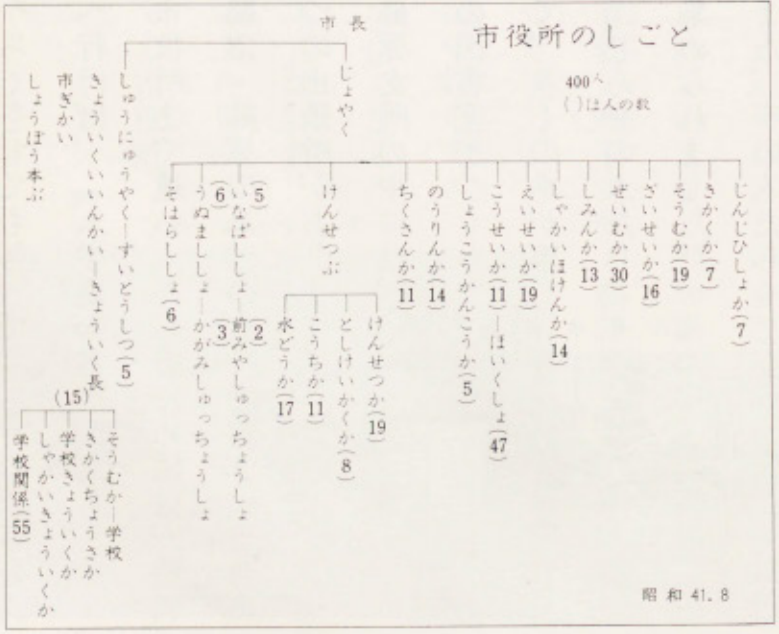 市役所のしごと
400人
( )は人の数
市長
じょやく
じんじひしょか(7)
きかくか(7)
そうむか(19)
ざいせいか(16)
ぜいむか(30)
しみんか(13)
しゃかいほけんか(14)
えいせいか(19)
こうせいか(11)―ほいくしょ(47)
しょうこうかんこうか(5)
のうりんか(14)
ちくさんか(11)
けんせつぶ
けんせつか(19)
としけいかくか(8)
こうちか(11)
水どうか(17)
いなばししょ(5)―前みやしゅっちょうしょ(2)
うぬまししょ(6)―かがみしゅっちょうしょ(3)
そはらししょ(6)
しゅうにゅうやく―すいとうしつ(5)
きょういくいいんかい―きょういく長
(15)
そうむか―学校
きかくちょうさか
学校きょういくか
しゃかいきょういくか
学校関係(55)
市ぎかい
しょうぼう本ぶ
昭和41.8